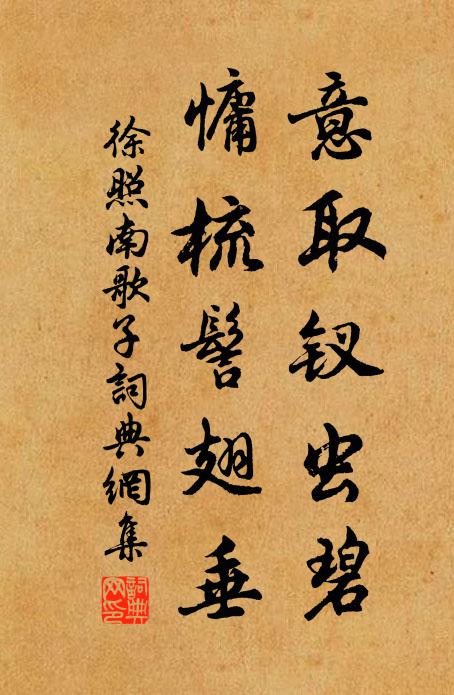 意取钗虫碧
慵梳髻翅垂
徐照南歌子詞典網集
詞典网印